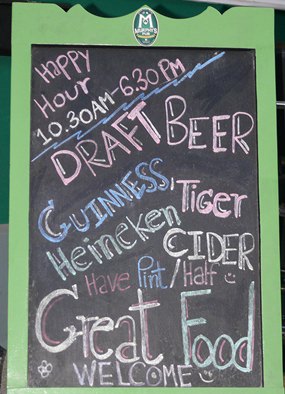 M
MURPHY'S
Happy
Hour
10.30AM-6.30PM
DRAFT BEER
GUINNESS, TIGER
Heineken CIDER
Have Pint/Half
Great Food
WELCOME